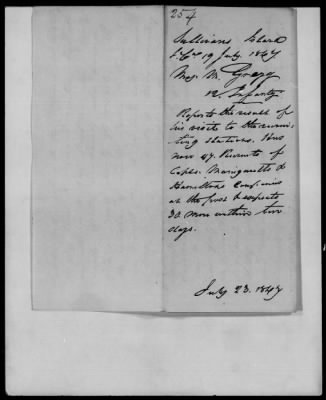 254
Sullivans Island
S. Ca. 19 July. 1847
Maj. M. Gregg
12. Infantry
Reports the result of
his visit to the recruit-
ting stations. Has
now 47. Recruits of
Capts. Manigault &
Hamiltons Companies
at the post & expects
30 more within two
days.
July 23. 1847